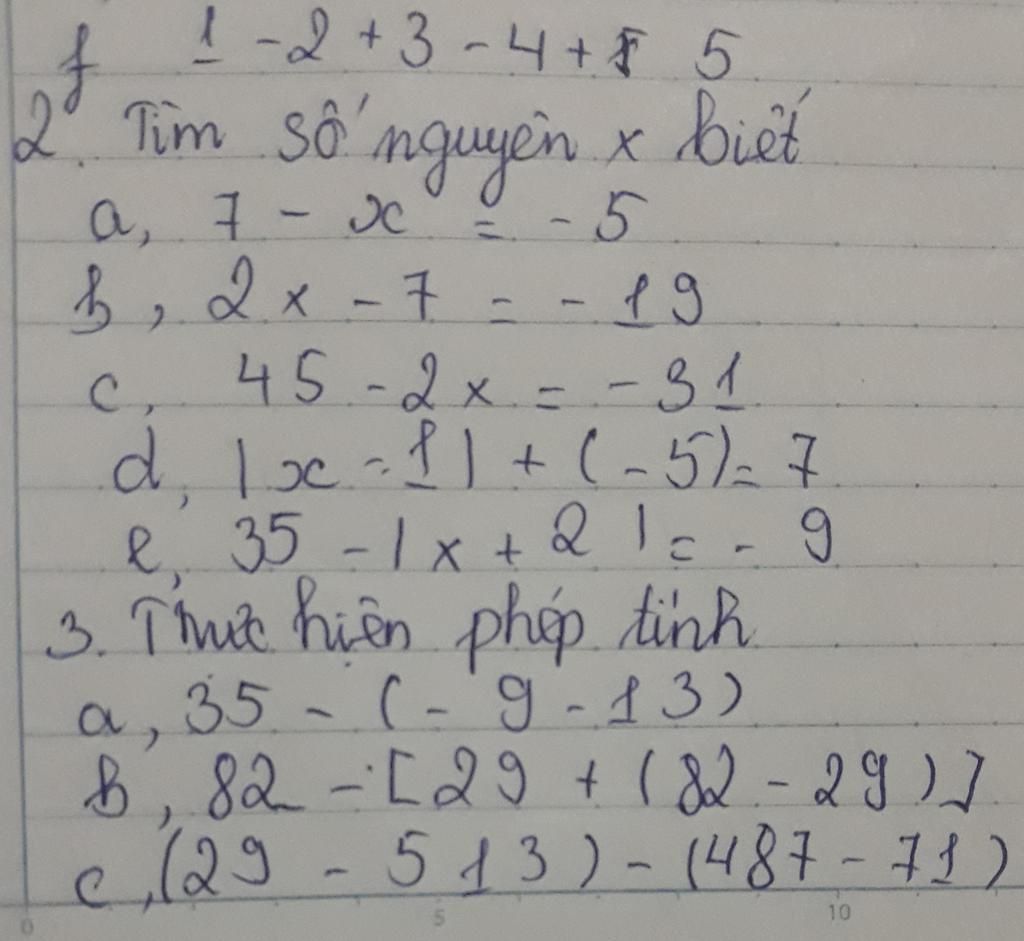 f 1 - 2 + 3 - 4 + 5 5
2. Tìm số nguyên x biết
a, 7 - x = - 5
b, 2x - 7 = - 19
c, 45 - 2x = - 31
d, |x - 1| + (- 5) = 7
e, 35 - |x + 2| = - 9
3. Thực hiện phép tính
a, 35 - (- 9 - 13)
b, 82 - [29 + (82 - 29)]
c, (29 - 513) - (487 - 71)
0 5 10